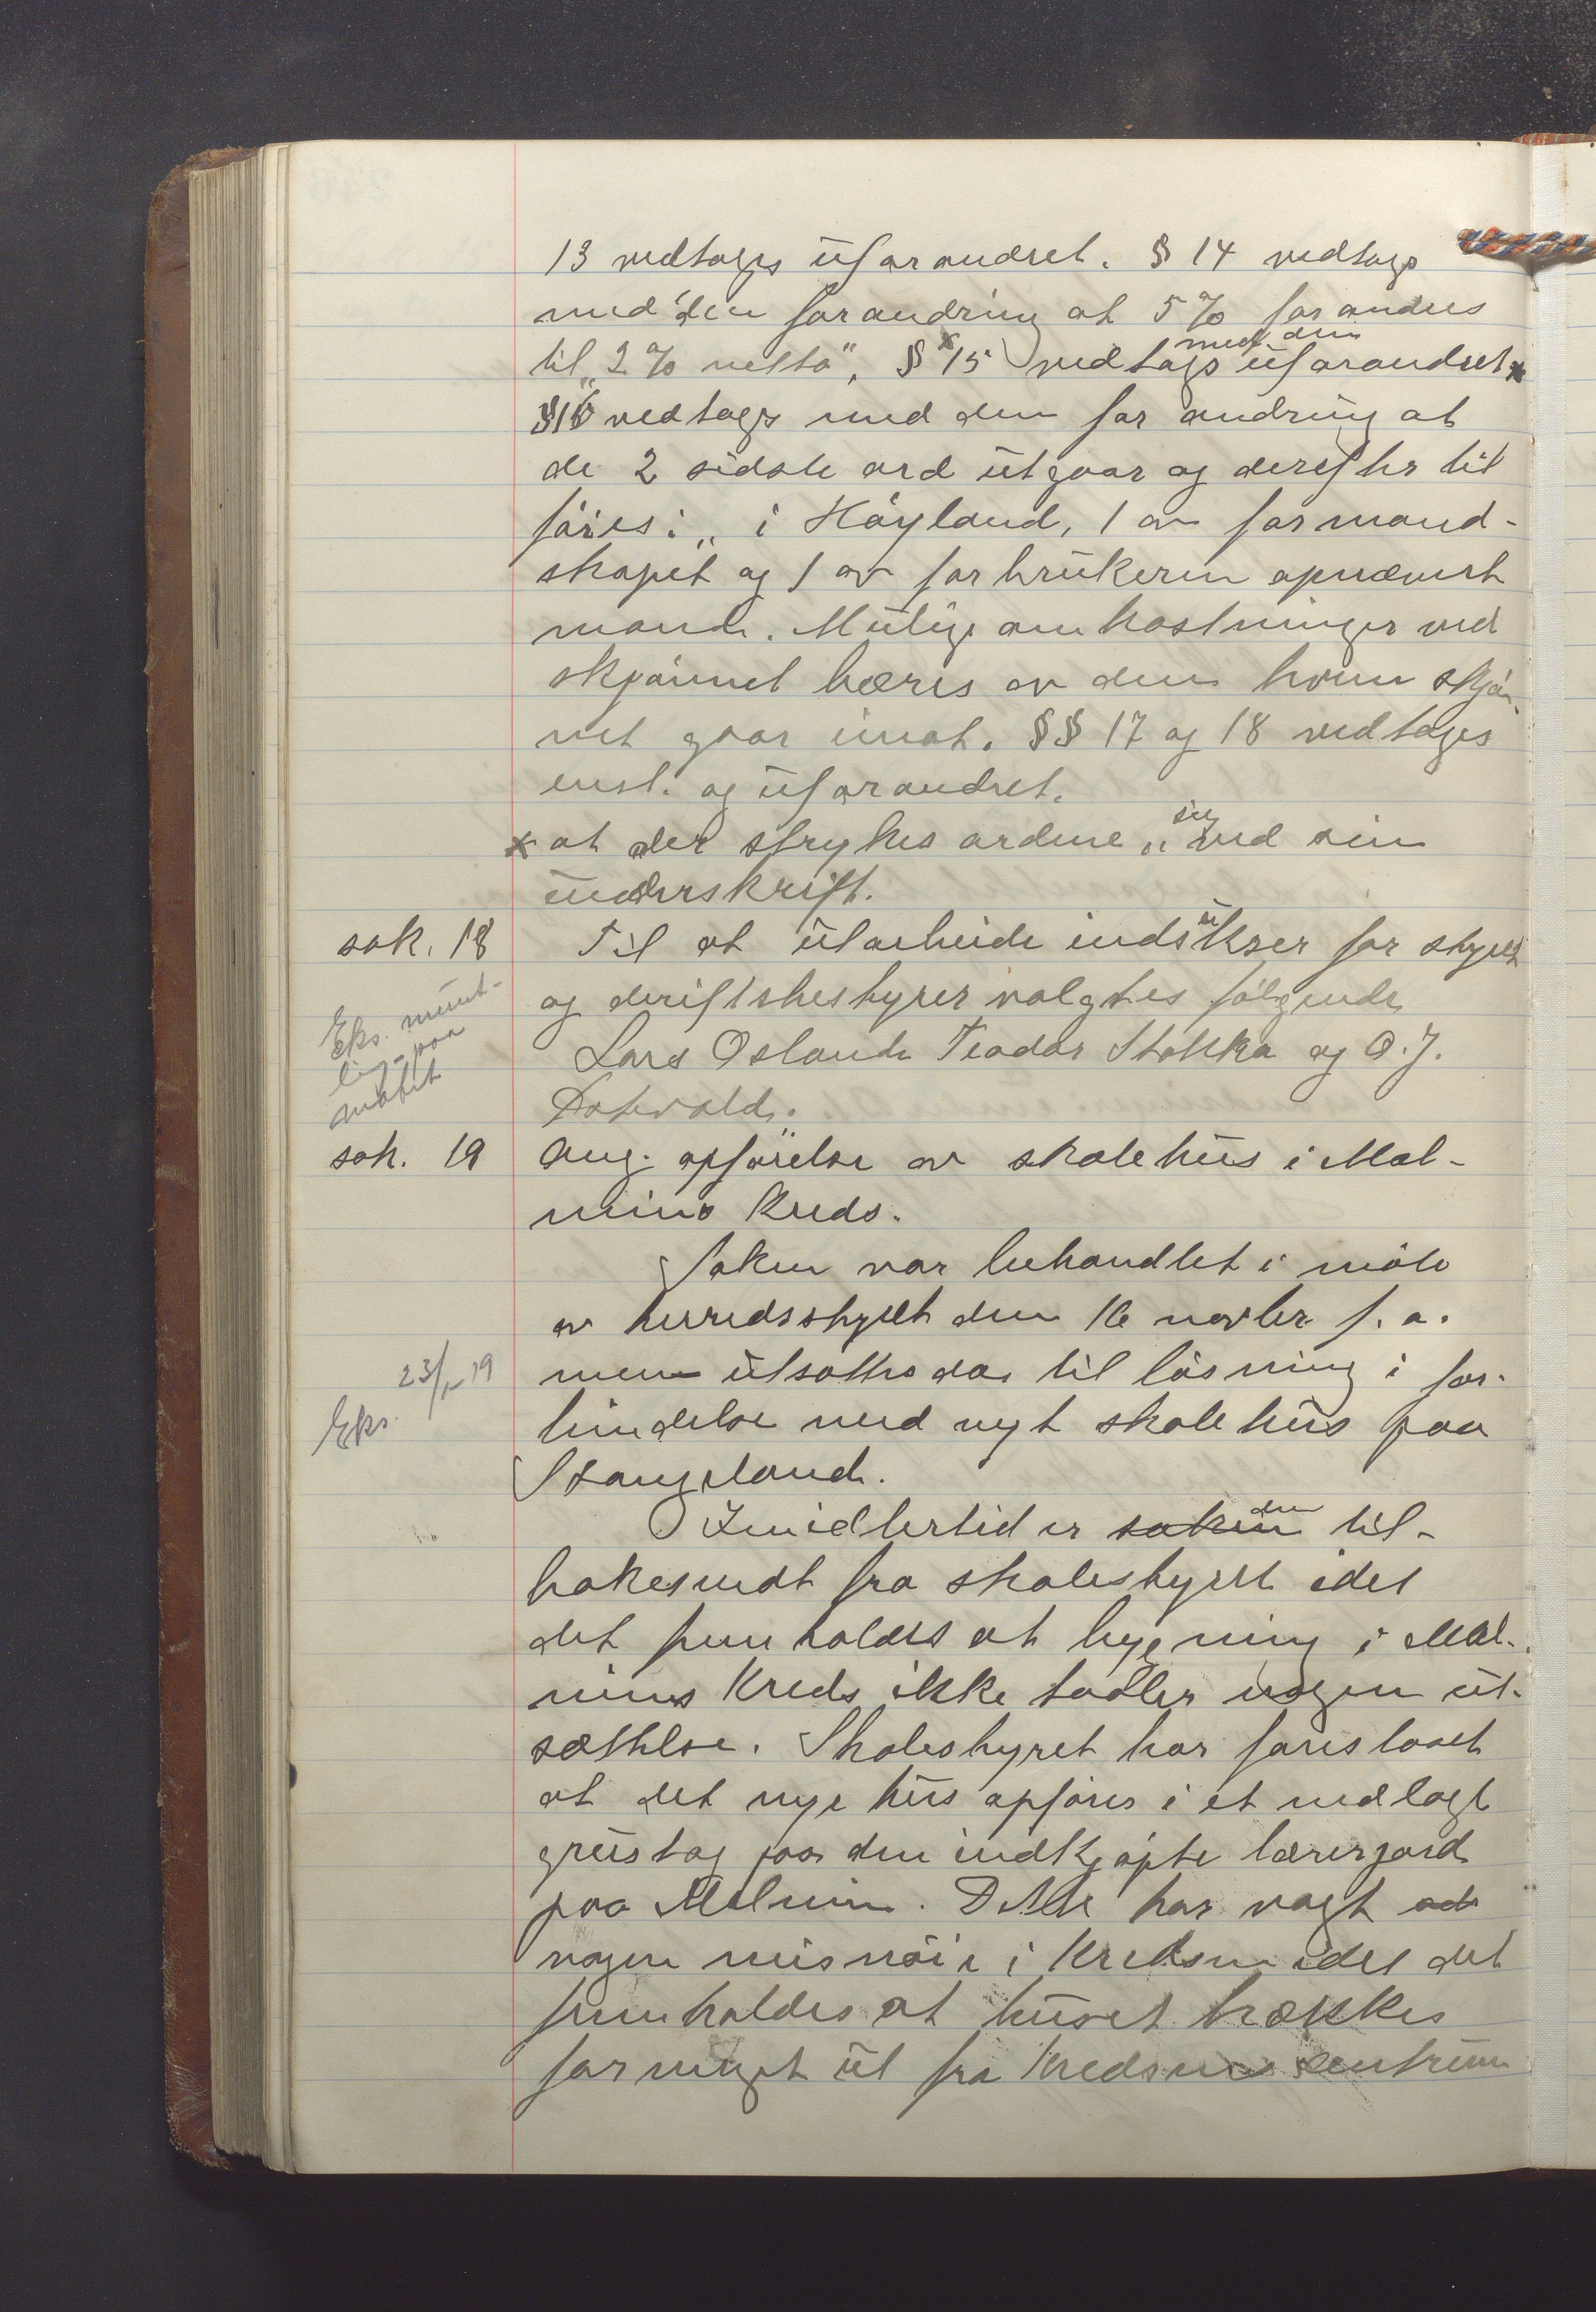 13 vedtages uforandret. § 14 vedtages
med den forandring at 5 % forandres
til „2 % netto“. § x 15 vedtages med den uforandret x
§16 vedtages med den forandring at
de 2 sidste ord utgaar og derefter til
föies: „i Höyland, 1 av formand-
skapet og 1 av forbrukeren opnævnt
mand. Mulige omkostninger ved
skjönnet bæres av den hvem skjön-
net gaar imot. §§ 17 og 18 vedtages
enst. og uforandret.
x at der strykes ordene „ ved sin
underskrift.
sak. 18 Til at utarbeide instrukser for styret
og driftsbestyrer valgtes fölgende
Eks. munt-
lig paa
mötet
Lars Osland Teodor Stokka og O. J.
Hatvold.
sak. 19 Ang. opförelse av skolehus i Mal-
mins kreds.
Saken var behandlet i möte
av herredsstyret den 16 novbr f. a.
23/1-19
men utsattes da til lösning i for-
Eks.
bindelse med nyt skolehus paa
Stangeland.
Imidlertid er saken den til-
bakesendt fra skolestyret idet
det fremholdes at bygning i Mal-
mins kreds ikke taaler nogen ut-
sættelse. Skolestyret har foreslaaet
at det nye hus opföres i et nedlagt
grustag paa den indkjöpte lærergard
paa Malmin. Dette har vagt
nogen misnöie i kredsen idet det
fremholdes at huset trækkes
for meget ut fra kredsens sentrum